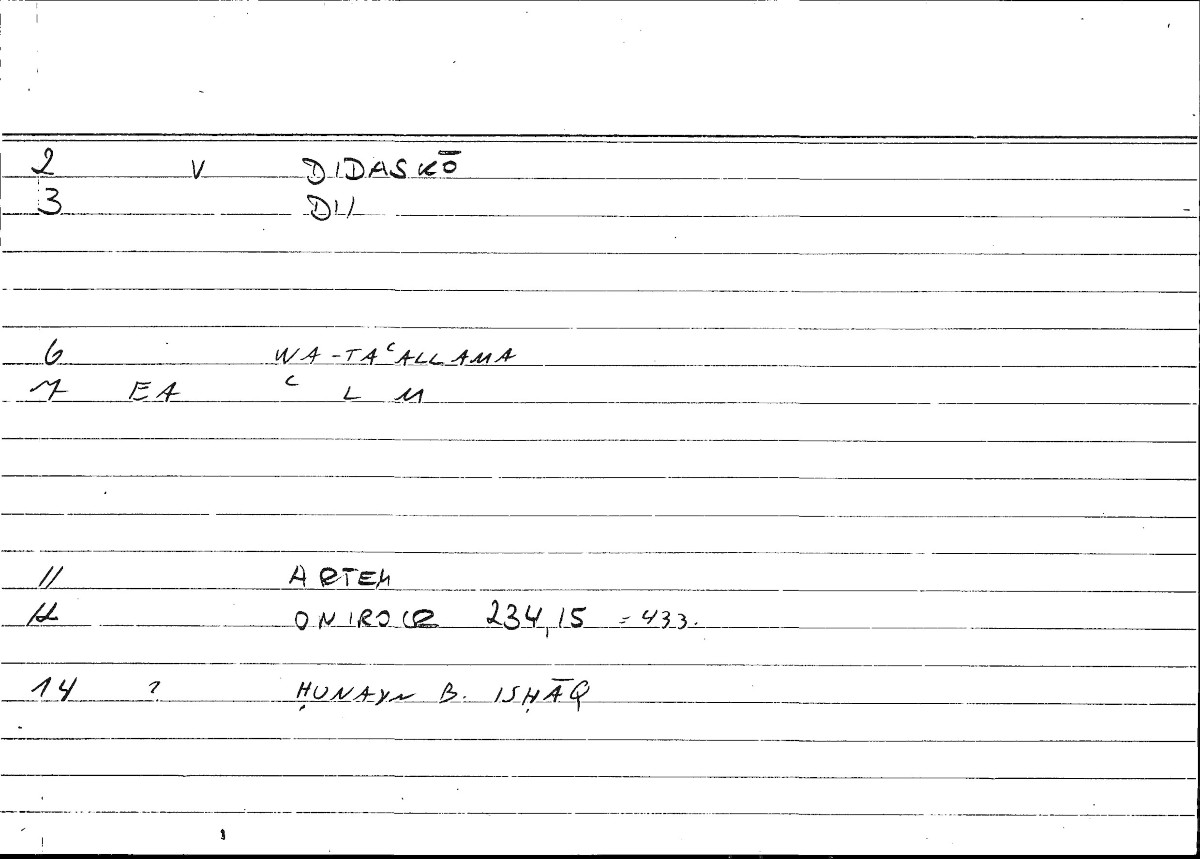 2 V DIDASKŌ
3 DII
6 WA-TAʿALLAMA
7 EA ʿ L M
11 ARTEM
12 ONIROCR 234,15 = 433.
14 ? ḤUNAYN B. ISḤĀQ